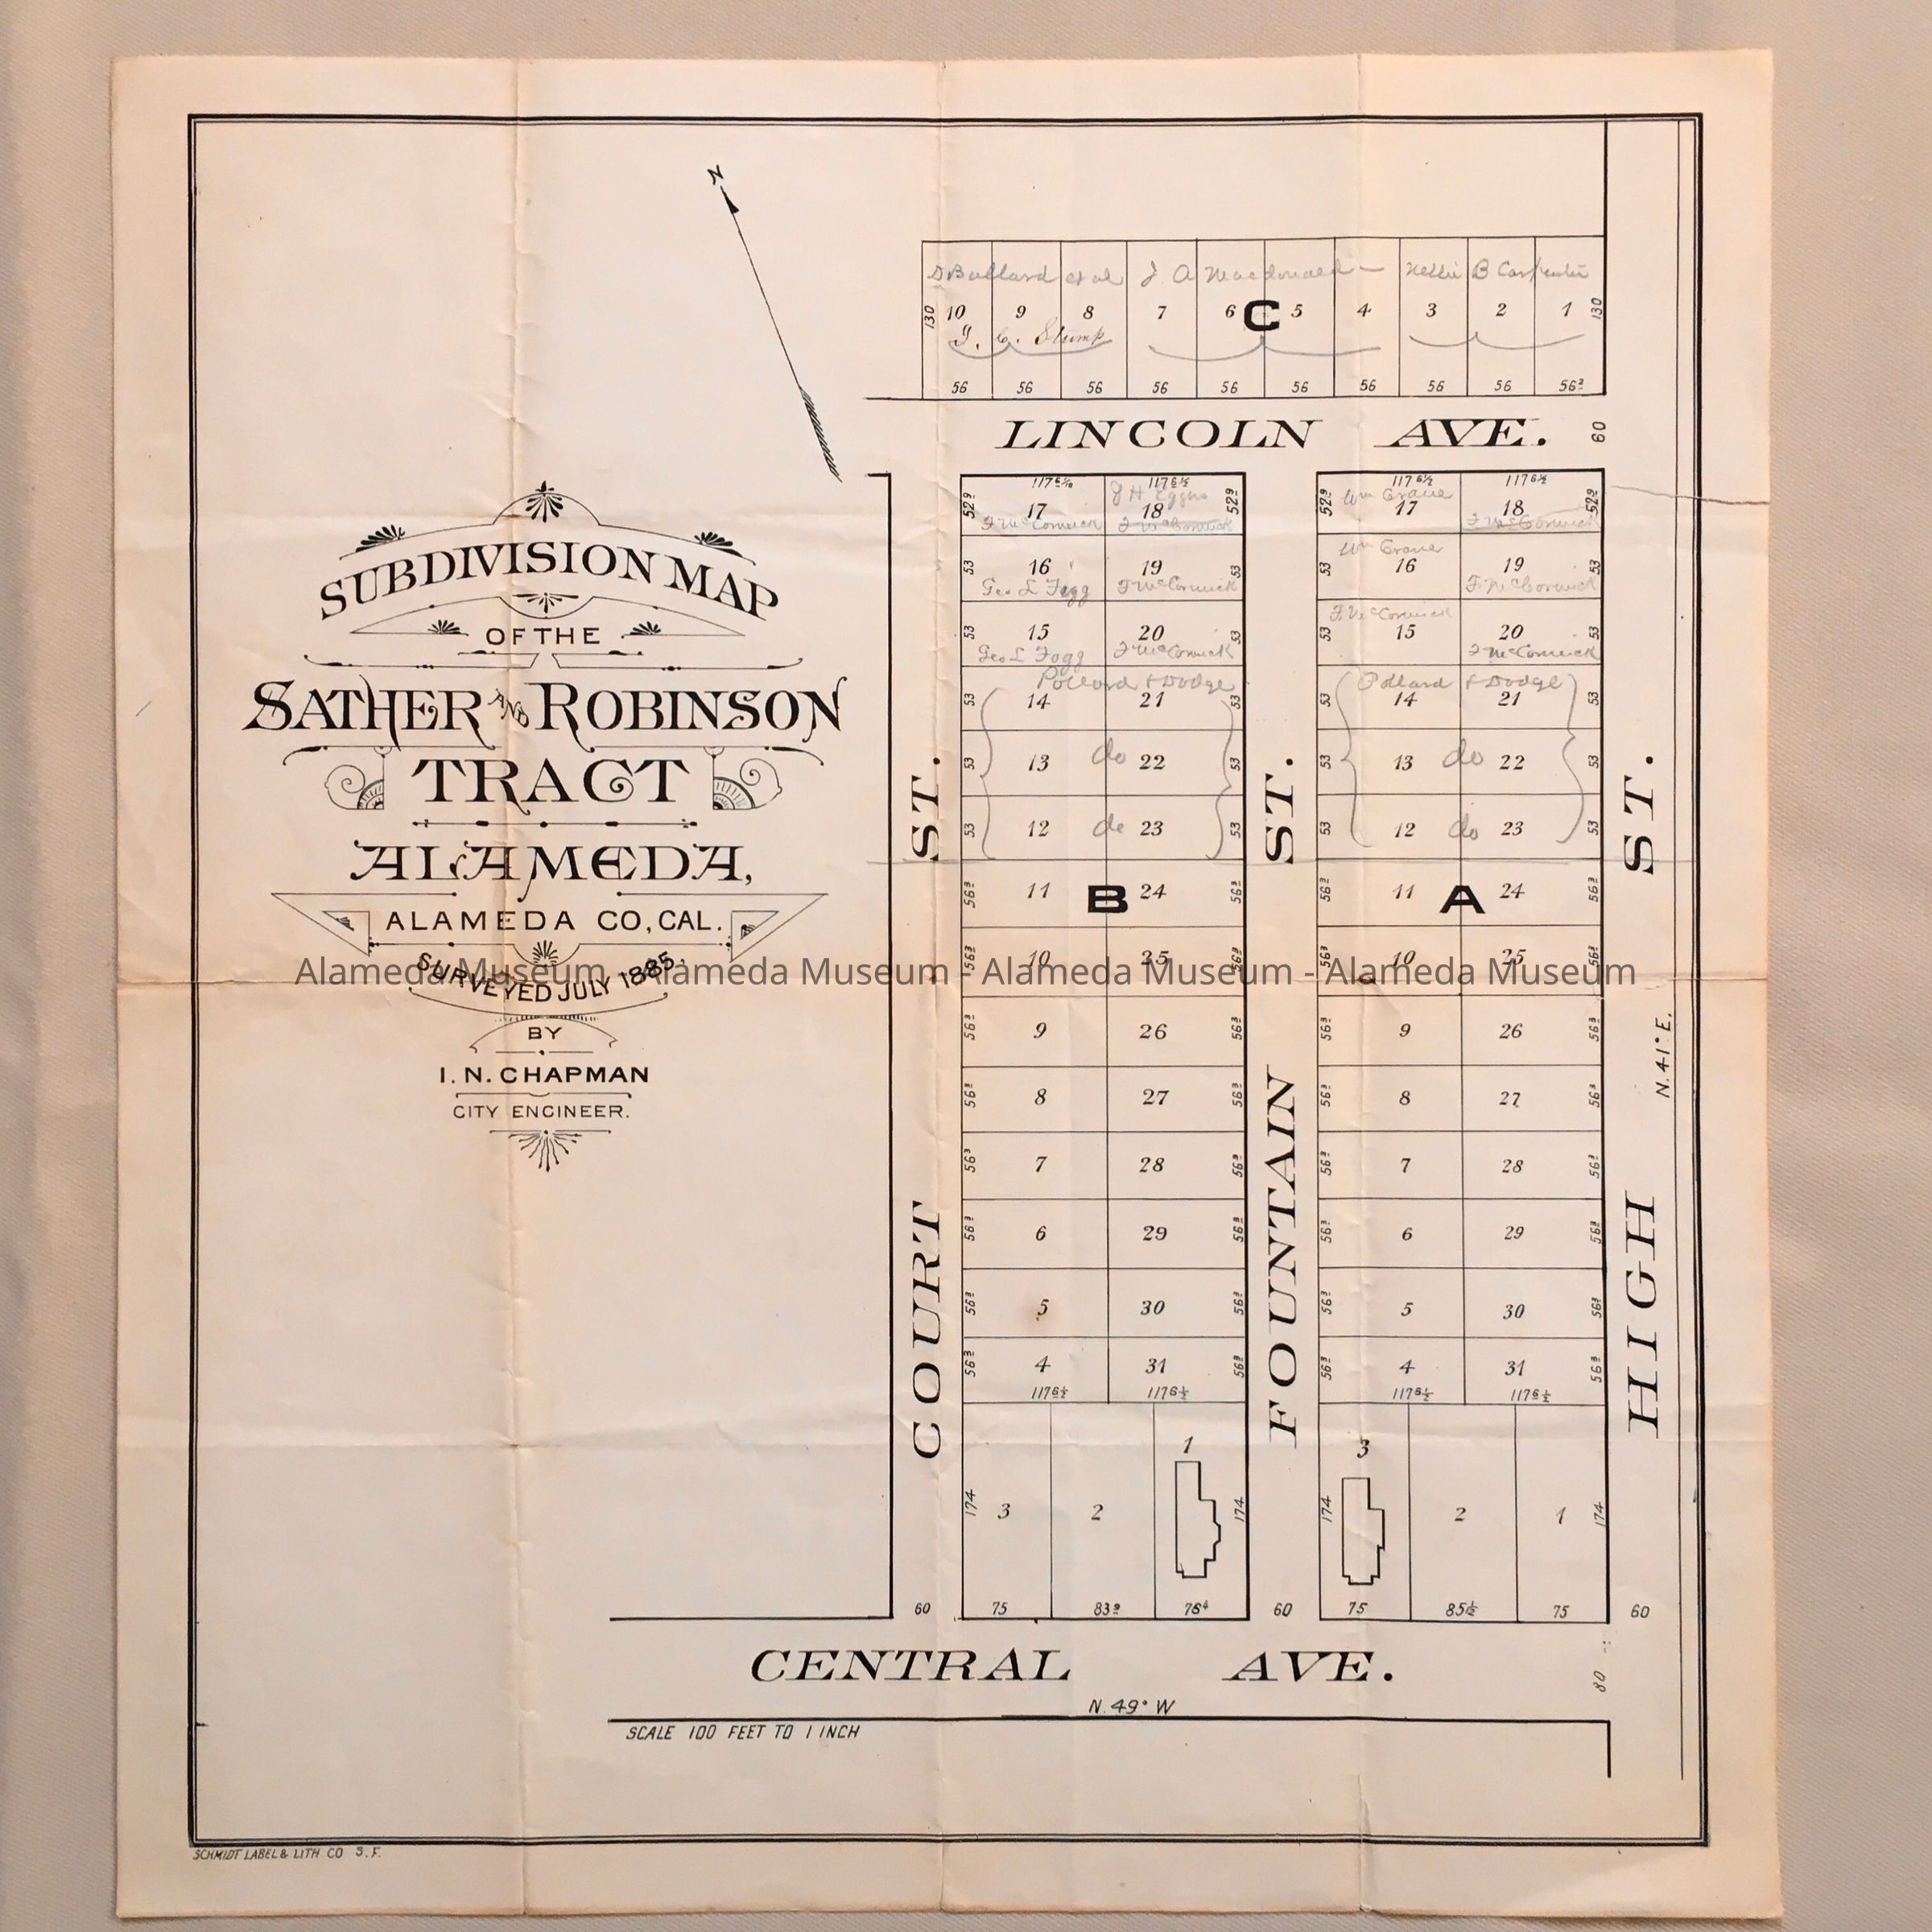 N
D Bullard et al J. A Macdonald — Nellie B Carpenter
130 10 9 8 7 6 C 5 4 3 2 1 130
J. C. Stump
56 56 56 56 56 56 56 56 56 56²
LINCOLN AVE. 60
SUBDIVISION MAP
OF THE
SATHER AND ROBINSON
TRACT
ALAMEDA,
ALAMEDA CO, CAL.
SURVEYED JULY 1885.
BY
I. N. CHAPMAN
CITY ENGINEER.
COURT ST.
117 6½ 117 6½
J H Eggers
52⁹ 17 18 52⁹
F McCormick F McCormick
53 16 19 53
Geo L Fogg F McCormick
53 15 20 53
Geo L Fogg F McCormick
Pollard & Dodge
53 14 21 53
53 13 do 22 53
53 12 do 23 53
56³ 11 B 24 56³
56³ 10 25 56³
56³ 9 26 56³
56³ 8 27 56³
56³ 7 28 56³
56³ 6 29 56³
56³ 5 30 56³
56³ 4 31 56³
117 6½ 117 6½
1
174 3 2 174
60 75 83⁹ 76⁴ 60
FOUNTAIN ST.
117 6½ 117 6½
Wm Grane
52⁹ 17 18 52⁹
F McCormick
Wm Grane
53 16 19 53
F. McCormick
F. McCormick
53 15 20 53
F McCormick
Pollard & Dodge
53 14 21 53
53 13 do 22 53
53 12 do 23 53
56³ 11 A 24 56³
56³ 10 25 56³
56³ 9 26 56³
56³ 8 27 56³
56³ 7 28 56³
56³ 6 29 56³
56³ 5 30 56³
56³ 4 31 56³
117 6½ 117 6½
3
174 2 1 174
75 85½ 75 60
HIGH ST.
N. 41° E.
Alameda Museum - Alameda Museum - Alameda Museum - Alameda Museum
CENTRAL AVE.
80
N. 49° W
SCALE 100 FEET TO 1 INCH
SCHMIDT LABEL & LITH CO S. F.